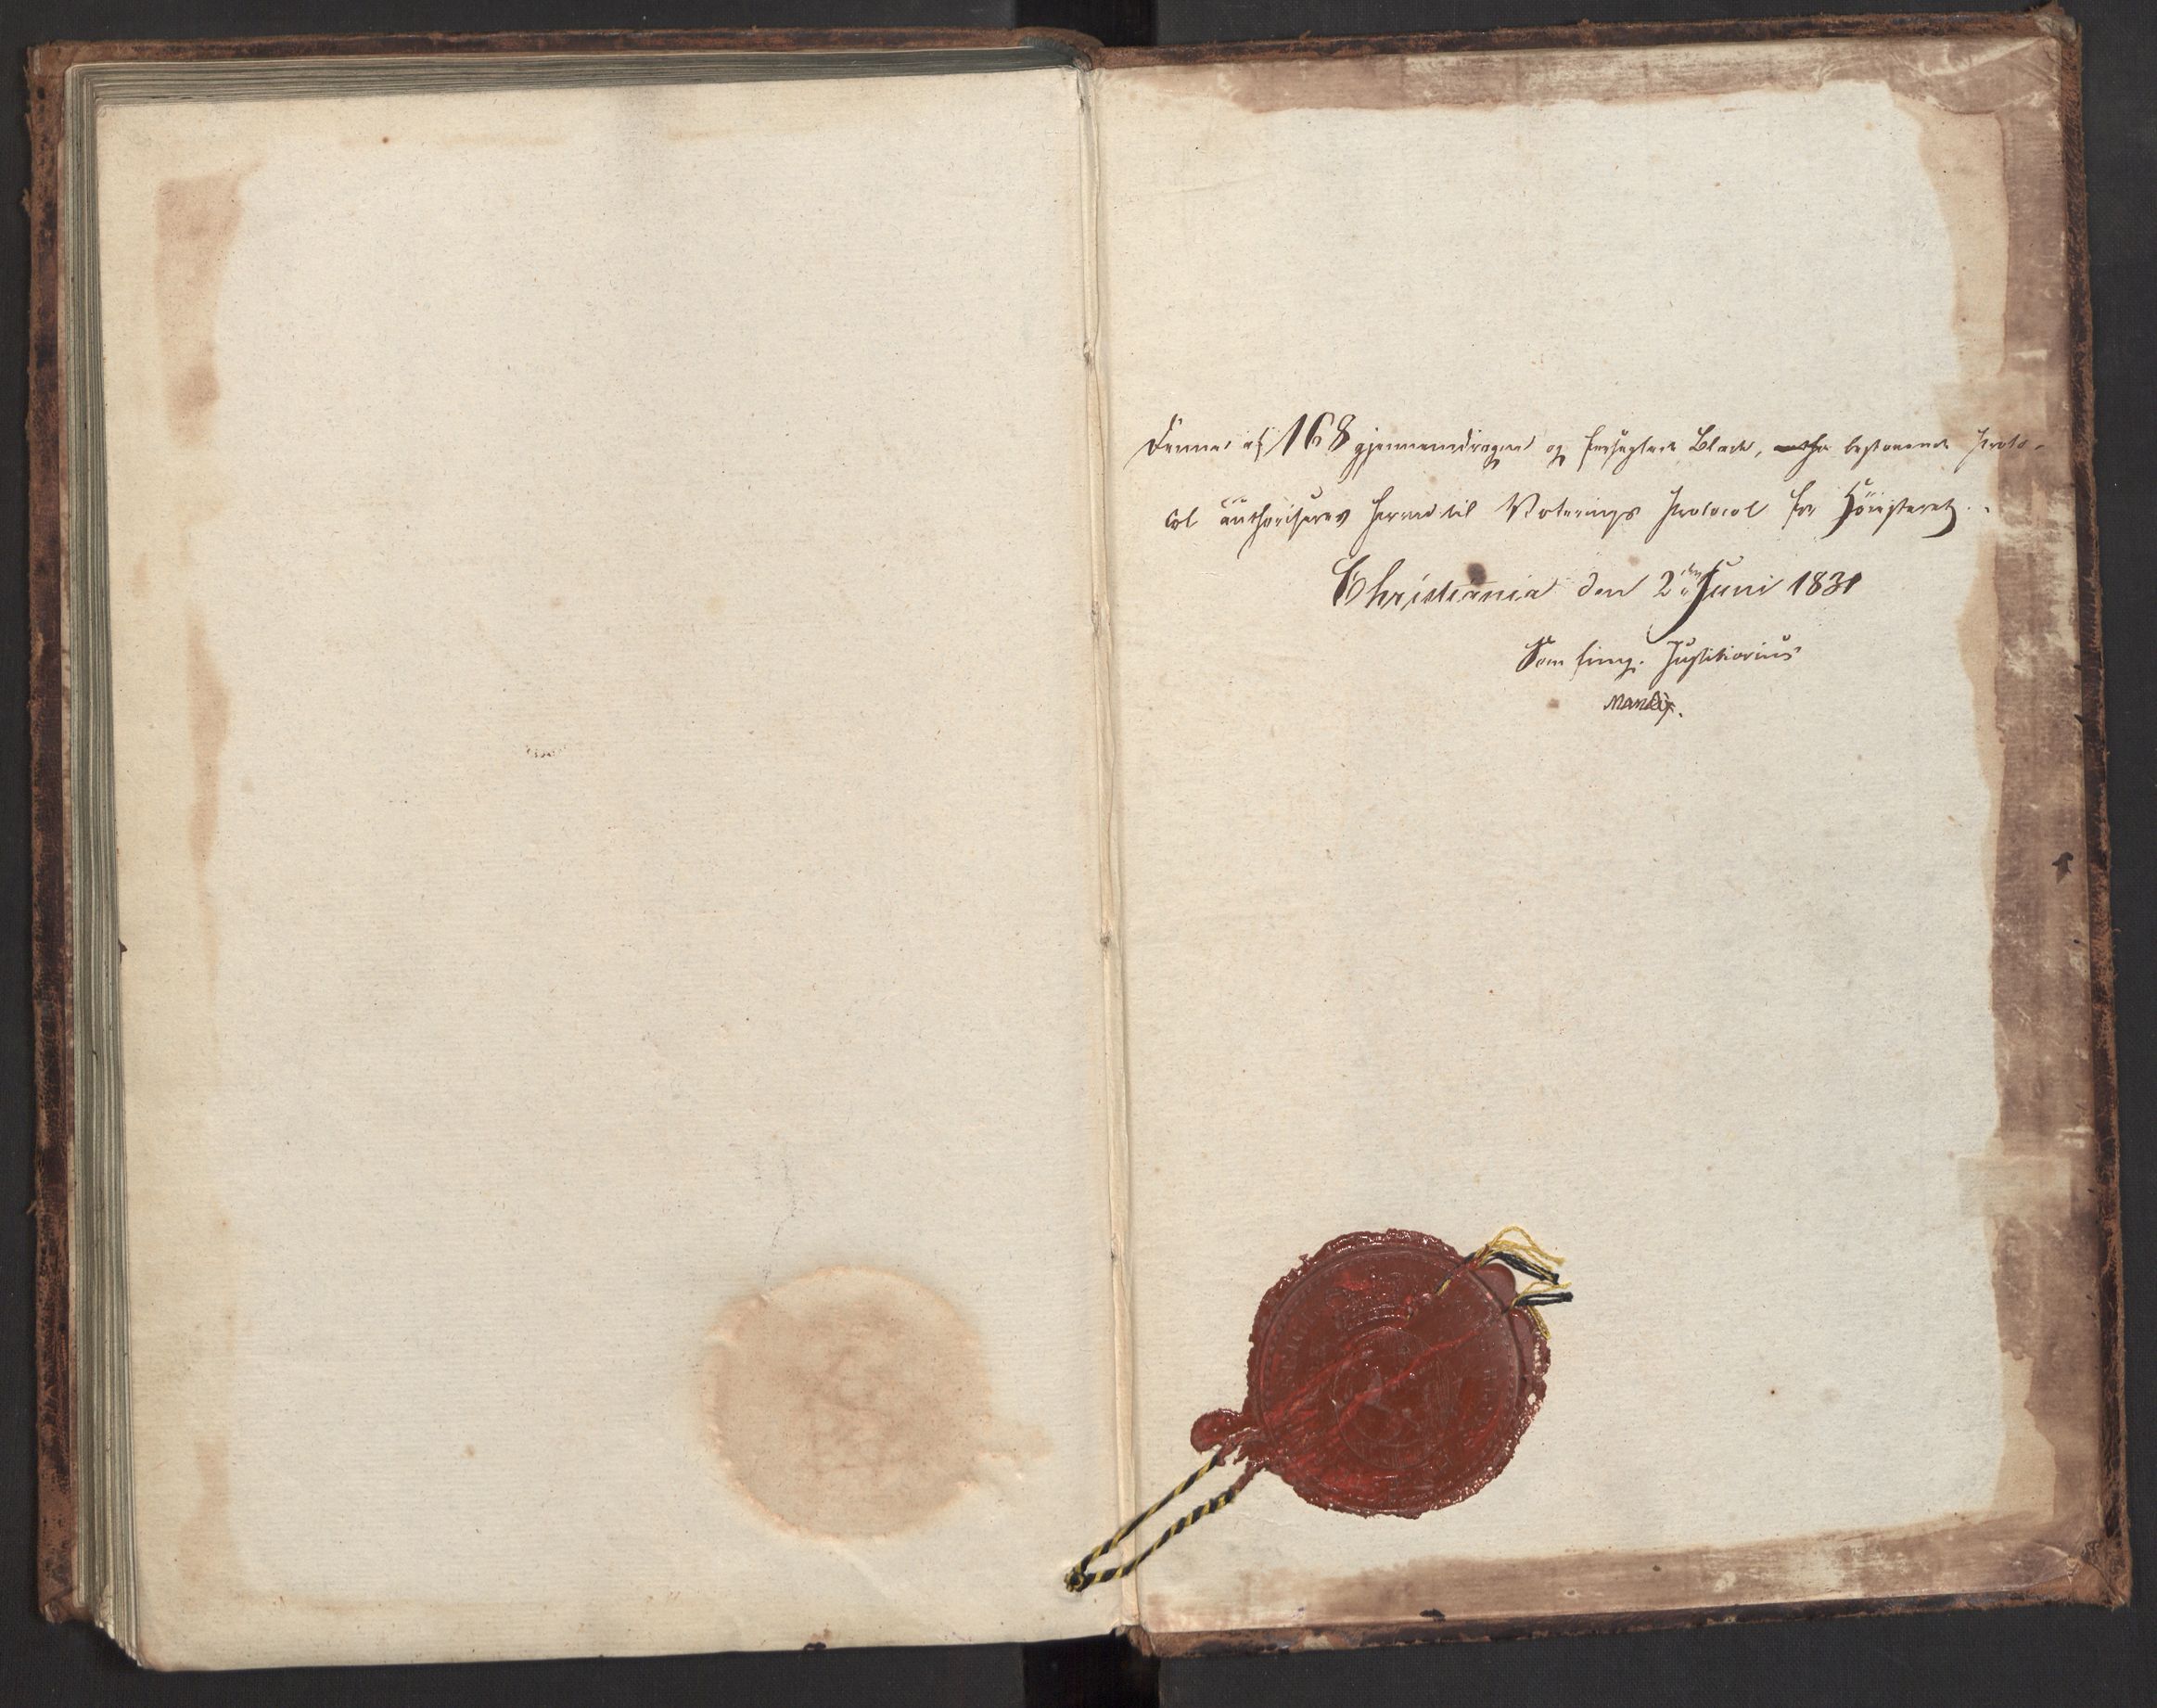 Denne af 168 gjennemdragne og forseglede Blade, bestaaende Proto-
col authoriseres herved til Voterings Protocol for Höiesteret.
Christiania den 2den Juni 1831
Som fung. Justitiarius